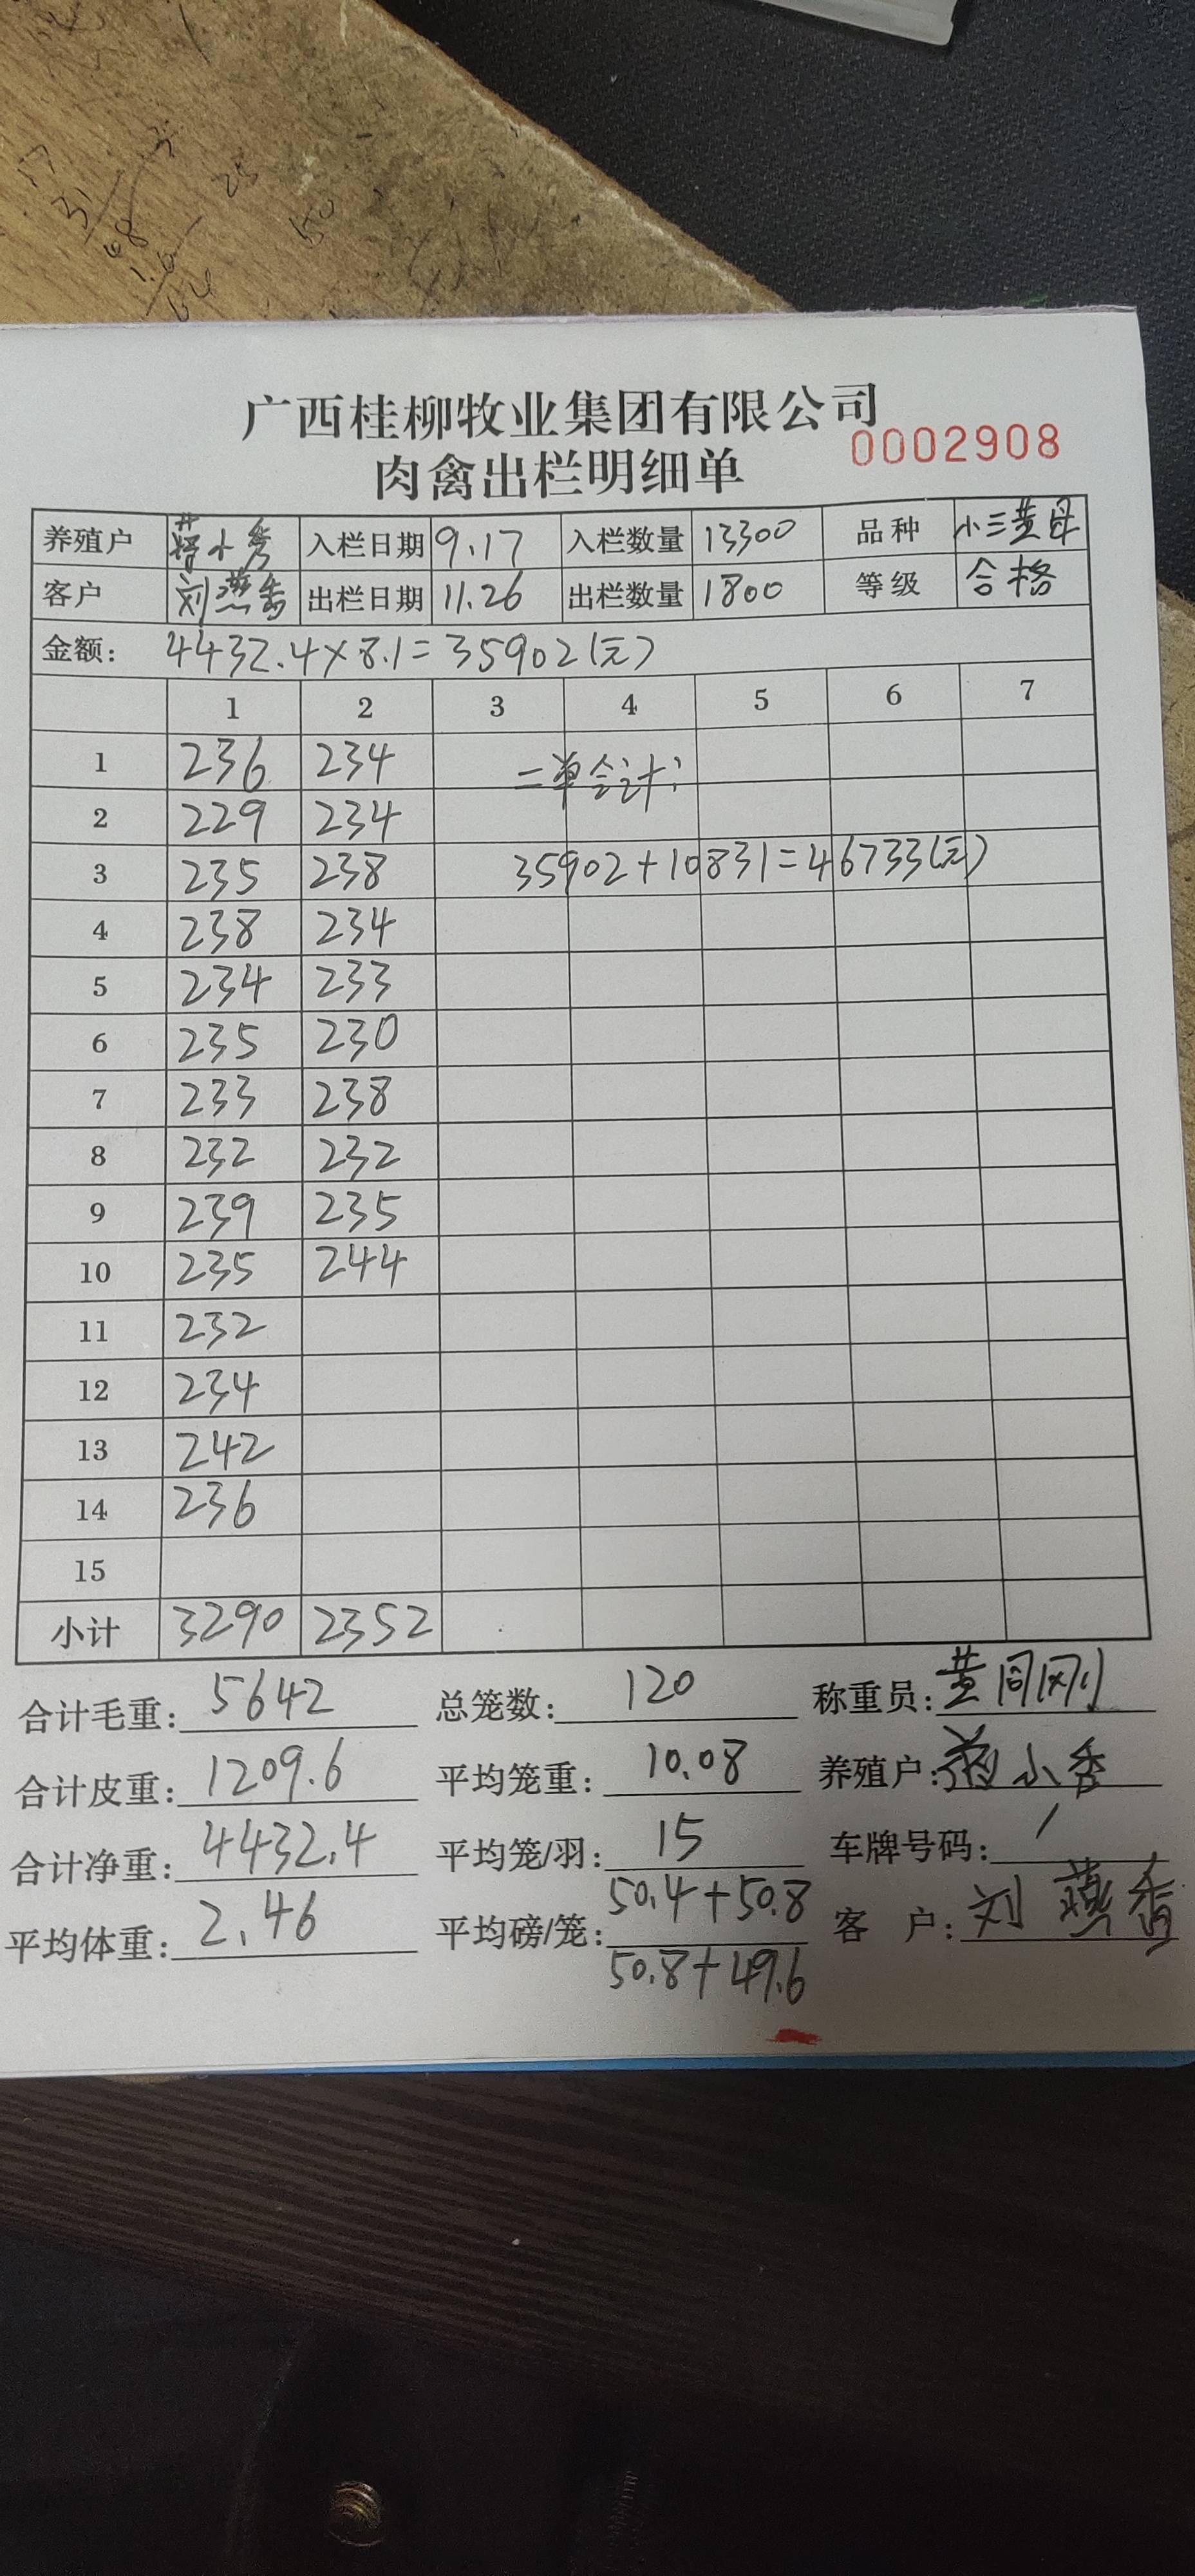 广西桂柳牧业集团有限公司
肉禽出栏明细单 0002908
养殖户 蒋小秀 入栏日期 9.17 入栏数量 13300 品种 小三黄母
客户 刘燕香 出栏日期 11.26 出栏数量 1800 等级 合格
金额: 4432.4×8.1=35902(元)
1 2 3 4 5 6 7
1 236 234 二单合计:
2 229 234
3 235 238 35902+10831=46733(元)
4 238 234
5 234 233
6 235 230
7 233 238
8 232 232
9 239 235
10 235 244
11 232
12 234
13 242
14 236
15
小计 3290 2352
合计毛重: 5642 总笼数: 120 称重员: 黄同刚
合计皮重: 1209.6 平均笼重: 10.08 养殖户: 蒋小秀
合计净重: 4432.4 平均笼/羽: 15 车牌号码: /
平均体重: 2.46 平均磅/笼: 50.4+50.8 客户: 刘燕香
50.8+49.6